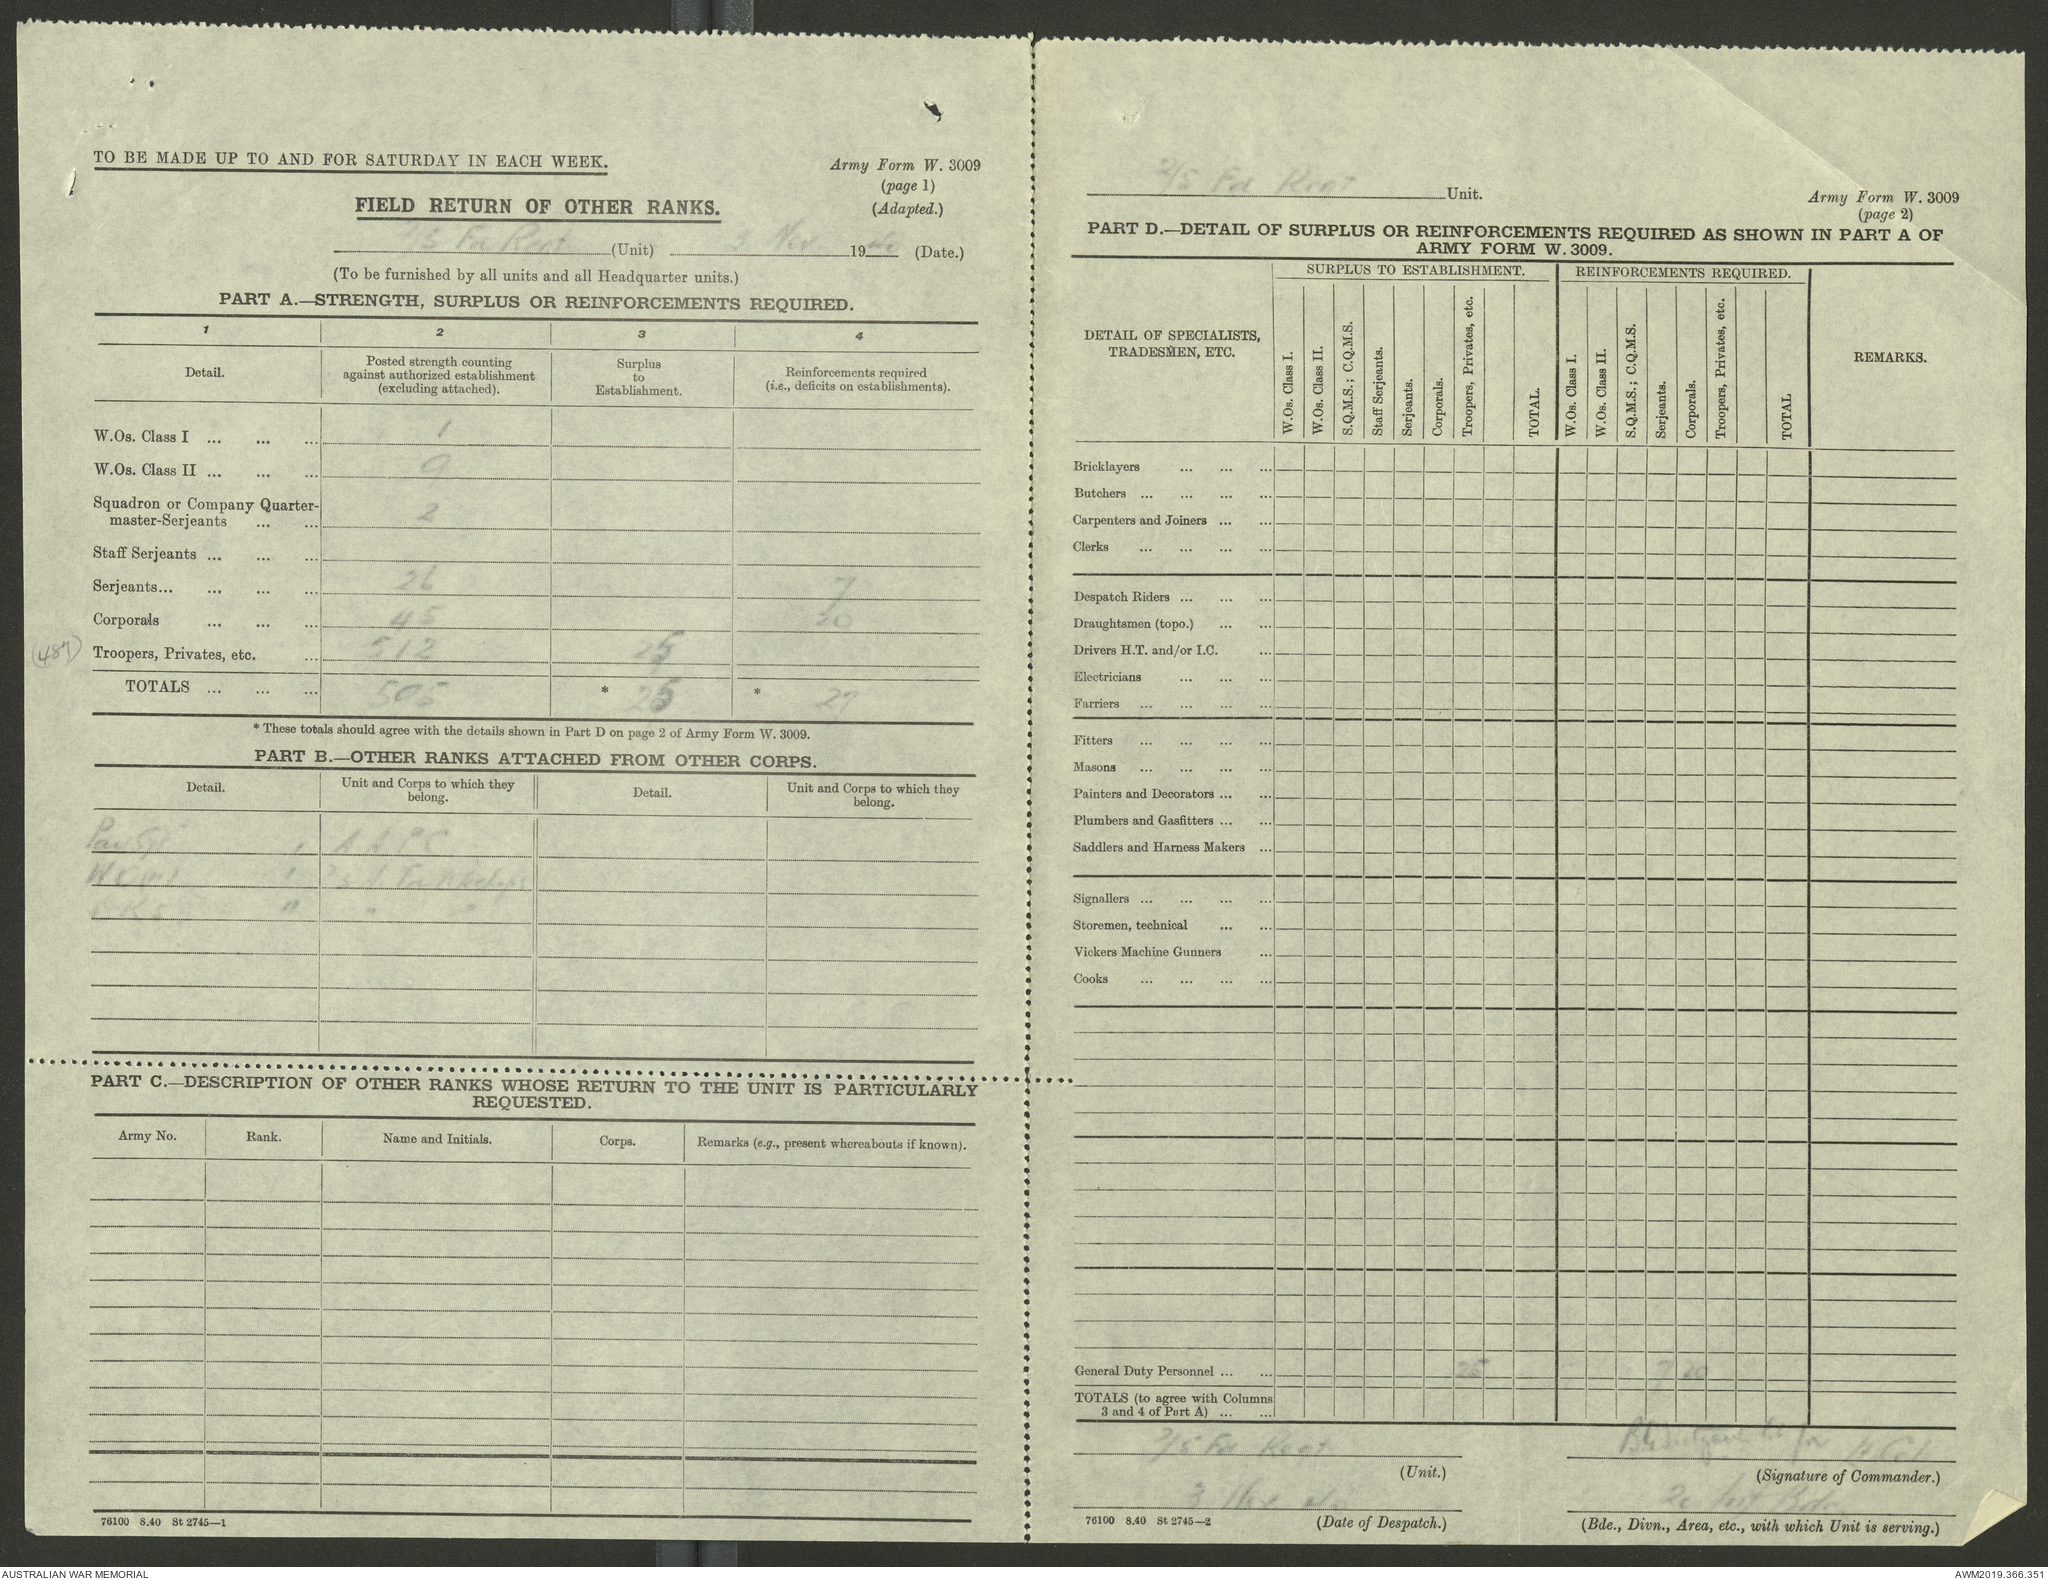 TO BE MADE UP TO AND FOR SATURDAY IN EACH WEEK.
Army Form W. 3009
(page 1)
(Adapted.)
FIELD RETURN OF OTHER RANKS.
2/5 Fd Regt (Unit) 3 Nov 1940 (Date.)
(To be furnished by all units and all Headquarter units.)
PART A.—STRENGTH, SURPLUS OR REINFORCEMENTS REQUIRED.
1 2 3 4
Detail. Posted strength counting against authorized establishment (excluding attached). Surplus to Establishment. Reinforcements required (i.e., deficits on establishments).
W.Os. Class I ... ... ... 1
W.Os. Class II ... ... ... 9
Squadron or Company Quarter-
master-Serjeants ... ... 2
Staff Serjeants ... ... ...
Serjeants... ... ... ... 26 7
Corporals ... ... ... 45 20
(487) Troopers, Privates, etc. ... 512 25
TOTALS ... ... ... 595 * 25 * 27
* These totals should agree with the details shown in Part D on page 2 of Army Form W. 3009.
PART B.—OTHER RANKS ATTACHED FROM OTHER CORPS.
Detail. Unit and Corps to which they belong. Detail. Unit and Corps to which they belong.
Pay Sgt 1 A A P C
" " "
PART C.—DESCRIPTION OF OTHER RANKS WHOSE RETURN TO THE UNIT IS PARTICULARLY
REQUESTED.
Army No. Rank. Name and Initials. Corps. Remarks (e.g., present whereabouts if known).
76100 8.40 St 2745—1
2/5 Fd Regt Unit.
Army Form W. 3009
(page 2)
PART D.—DETAIL OF SURPLUS OR REINFORCEMENTS REQUIRED AS SHOWN IN PART A OF
ARMY FORM W. 3009.
SURPLUS TO ESTABLISHMENT. REINFORCEMENTS REQUIRED.
DETAIL OF SPECIALISTS, TRADESMEN, ETC.
W.Os. Class I. W.Os. Class II. S.Q.M.S.; C.Q.M.S. Staff Serjeants. Serjeants. Corporals. Troopers, Privates, etc. TOTAL.
W.Os. Class I. W.Os. Class II. S.Q.M.S.; C.Q.M.S. Serjeants. Corporals. Troopers, Privates, etc. TOTAL
REMARKS.
Bricklayers ... ... ...
Butchers ... ... ... ...
Carpenters and Joiners ... ...
Clerks ... ... ... ...
Despatch Riders ... ... ...
Draughtsmen (topo.) ... ...
Drivers H.T. and/or I.C. ...
Electricians ... ... ...
Farriers ... ... ... ...
Fitters ... ... ... ...
Masons ... ... ... ...
Painters and Decorators ... ...
Plumbers and Gasfitters ... ...
Saddlers and Harness Makers ...
Signallers ... ... ... ...
Storemen, technical ... ...
Vickers Machine Gunners ...
Cooks ... ... ... ...
General Duty Personnel ... ... 25 7 20
TOTALS (to agree with Columns
3 and 4 of Part A) ... ...
2/5 Fd Regt
(Unit.)
(Signature of Commander.)
3 Nov 40
(Date of Despatch.)
Inf Bde
(Bde., Divn., Area, etc., with which Unit is serving.)
76100 8.40 St 2745—2
AUSTRALIAN WAR MEMORIAL
AWM2019.366.351